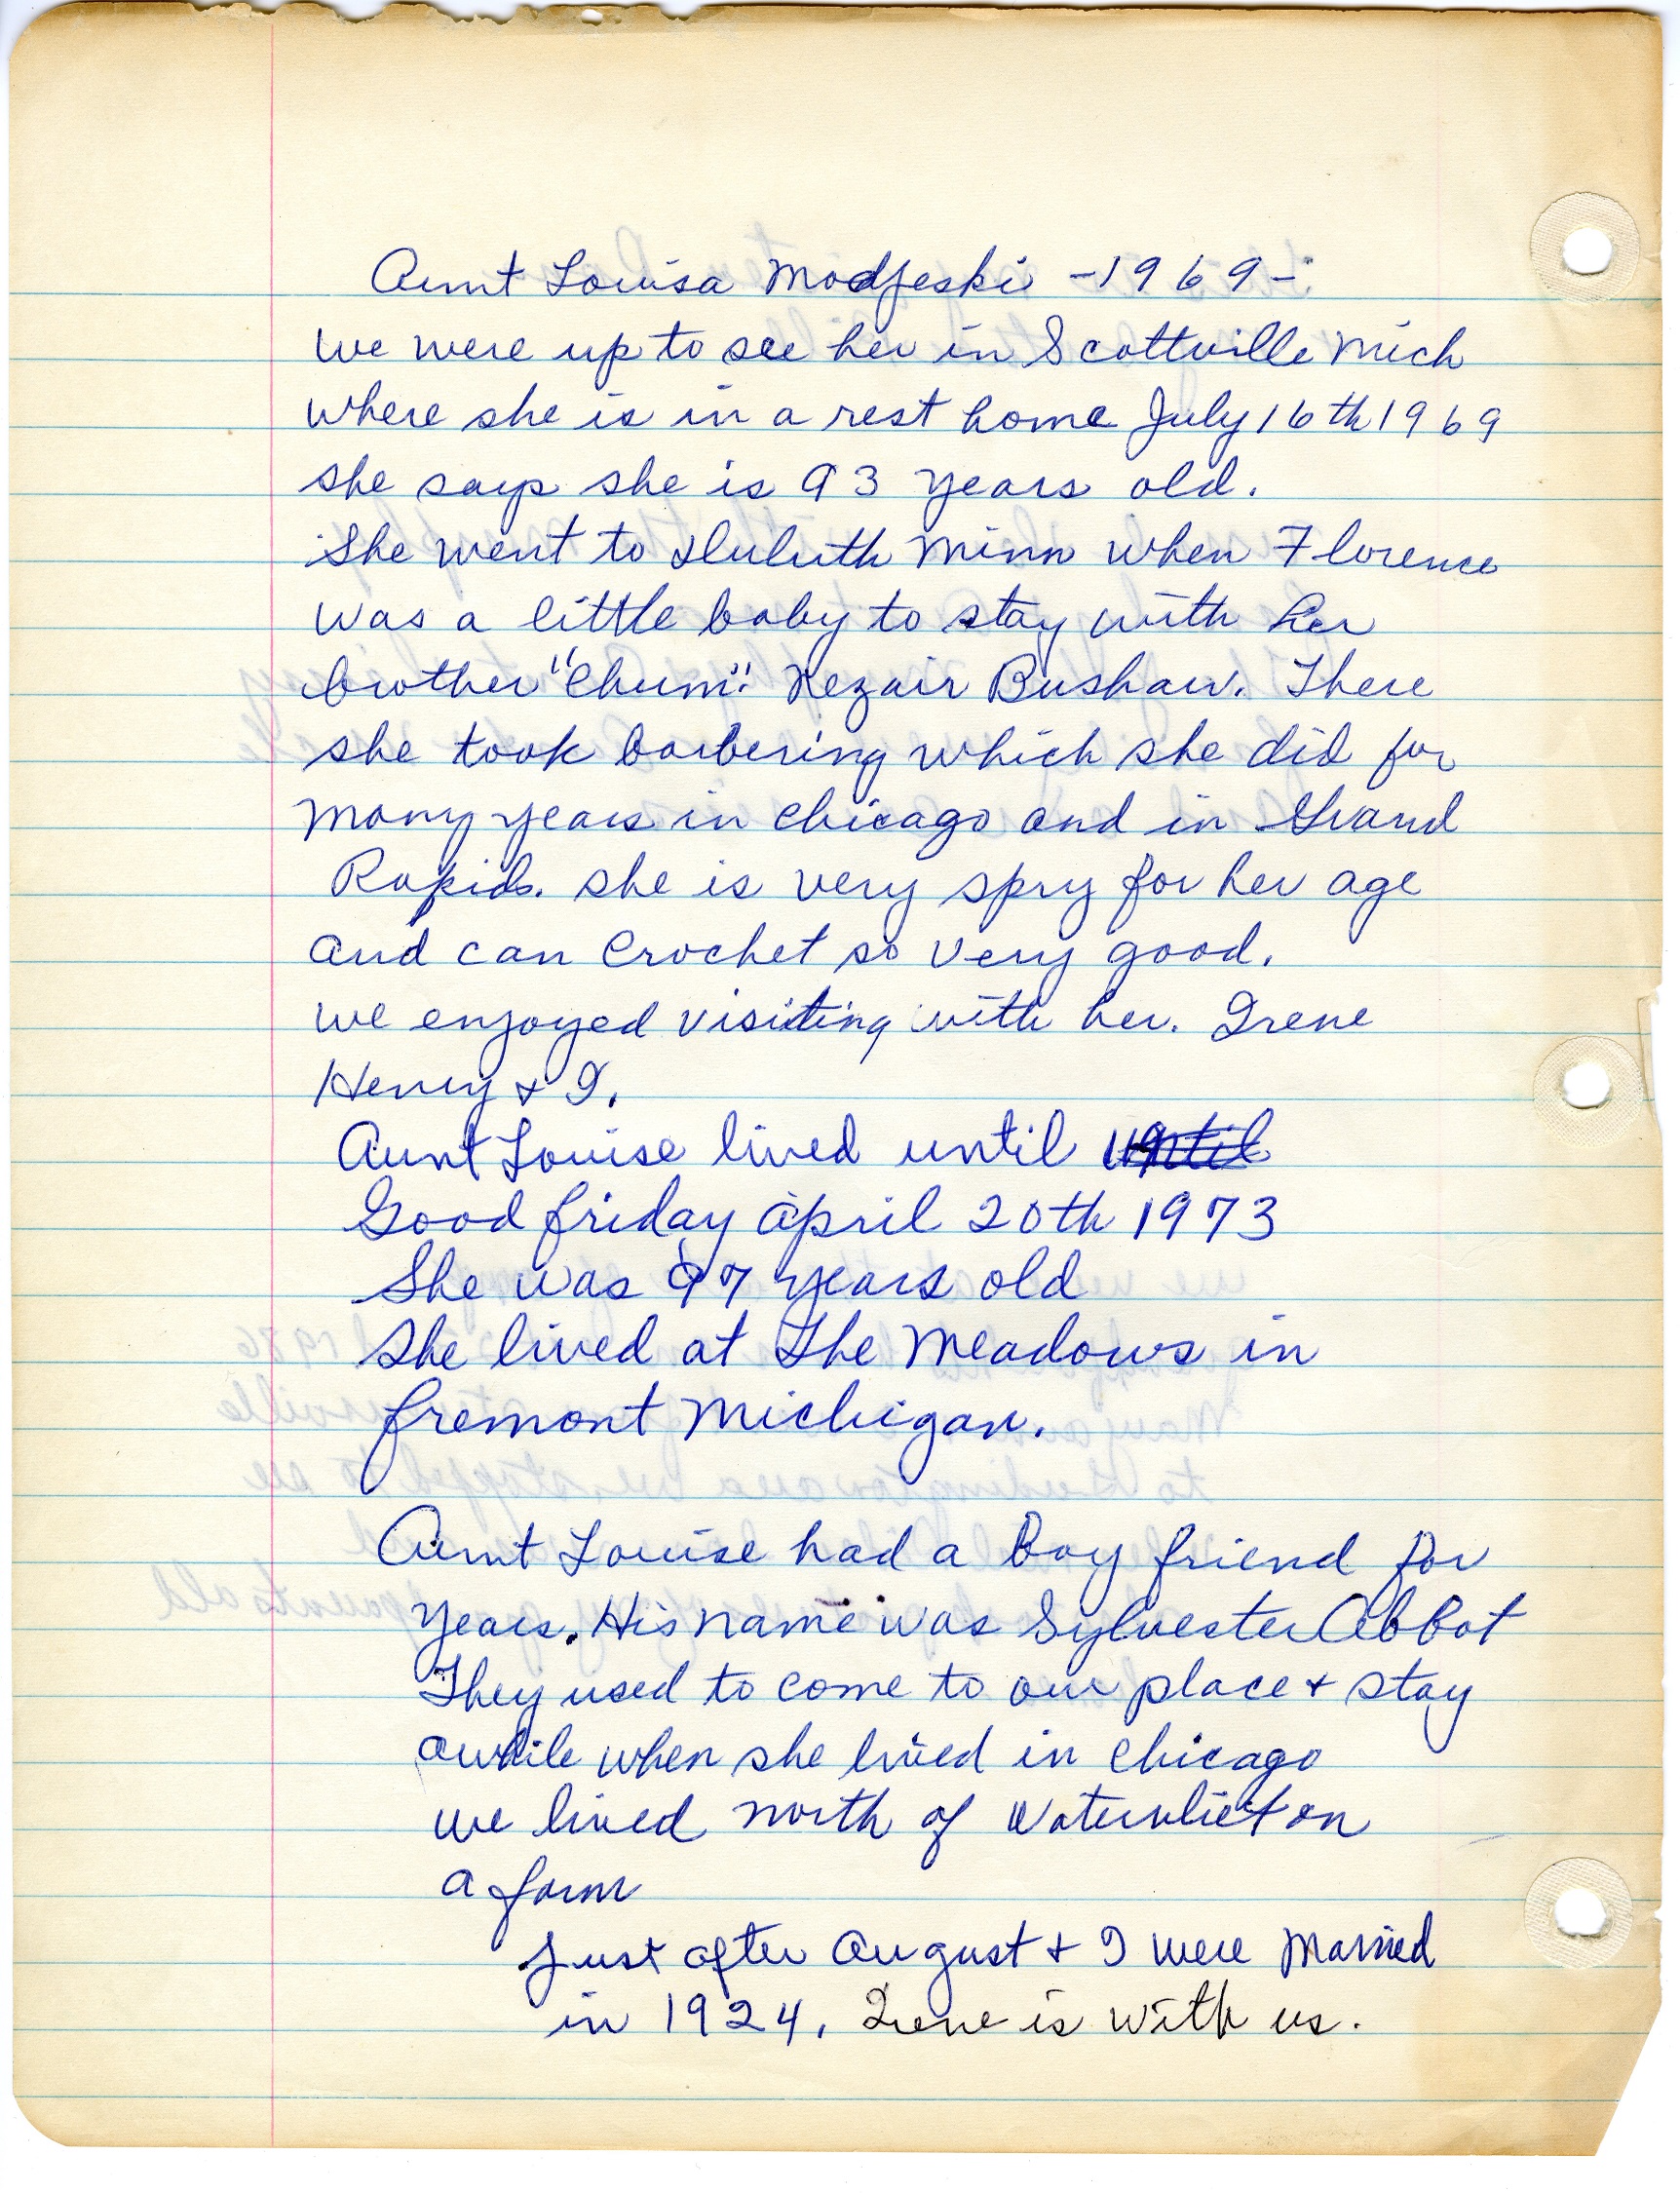 Aunt Louisa Modjeski -1969-
we were up to see her in Scottville Mich
where she is in a rest home July 16th 1969
she says she is 93 years old.
She went to Duluth Minn when Florence
was a little baby to stay with her
brother "Chum". Nezair Bushaw. There
she took barbering which she did for
many years in Chicago and in Grand
Rapids. she is very spry for her age
and can crochet so very good.
we enjoyed visiting with her. Irene
Henry & I.
Aunt Louise lived until until
Good friday april 20th 1973
She was 97 years old
She lived at The Meadows in
fremont Michigan.
Aunt Louise had a boy friend for
years. His name was Sylvester Abbot
They used to come to our place & stay
awhile when she lived in Chicago
we lived north of Watervliet on
a farm
Just after August & I were Married
in 1924. Irene is with us.